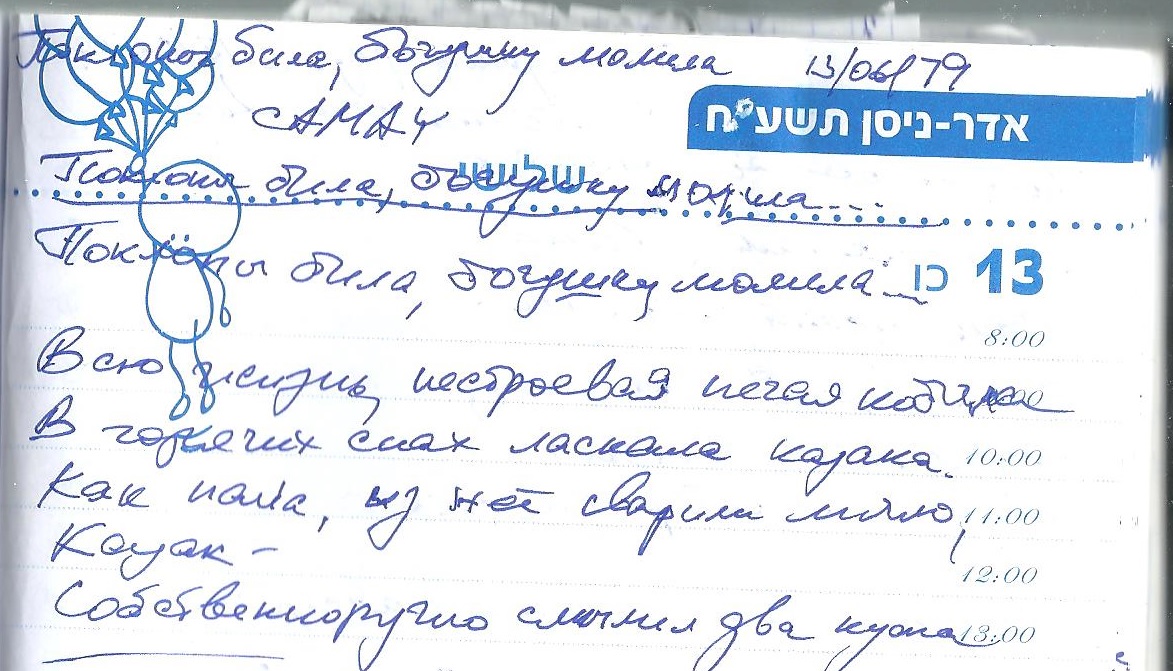 Поклоны била, богушку молила 13/06/79
CAMAY
אדר-ניסן תשע"ח
שלישי
Поклоны била, богушку молила...
13 כו
Поклоны била, богушку молила...
8:00
Всю жизнь, нестроевая пегая кобылка
В горячих снах ласкала казака. 10:00
Как пала, из неё сварили мыло, 11:00
Казак –
12:00
Собственноручно смылил два куска 13:00